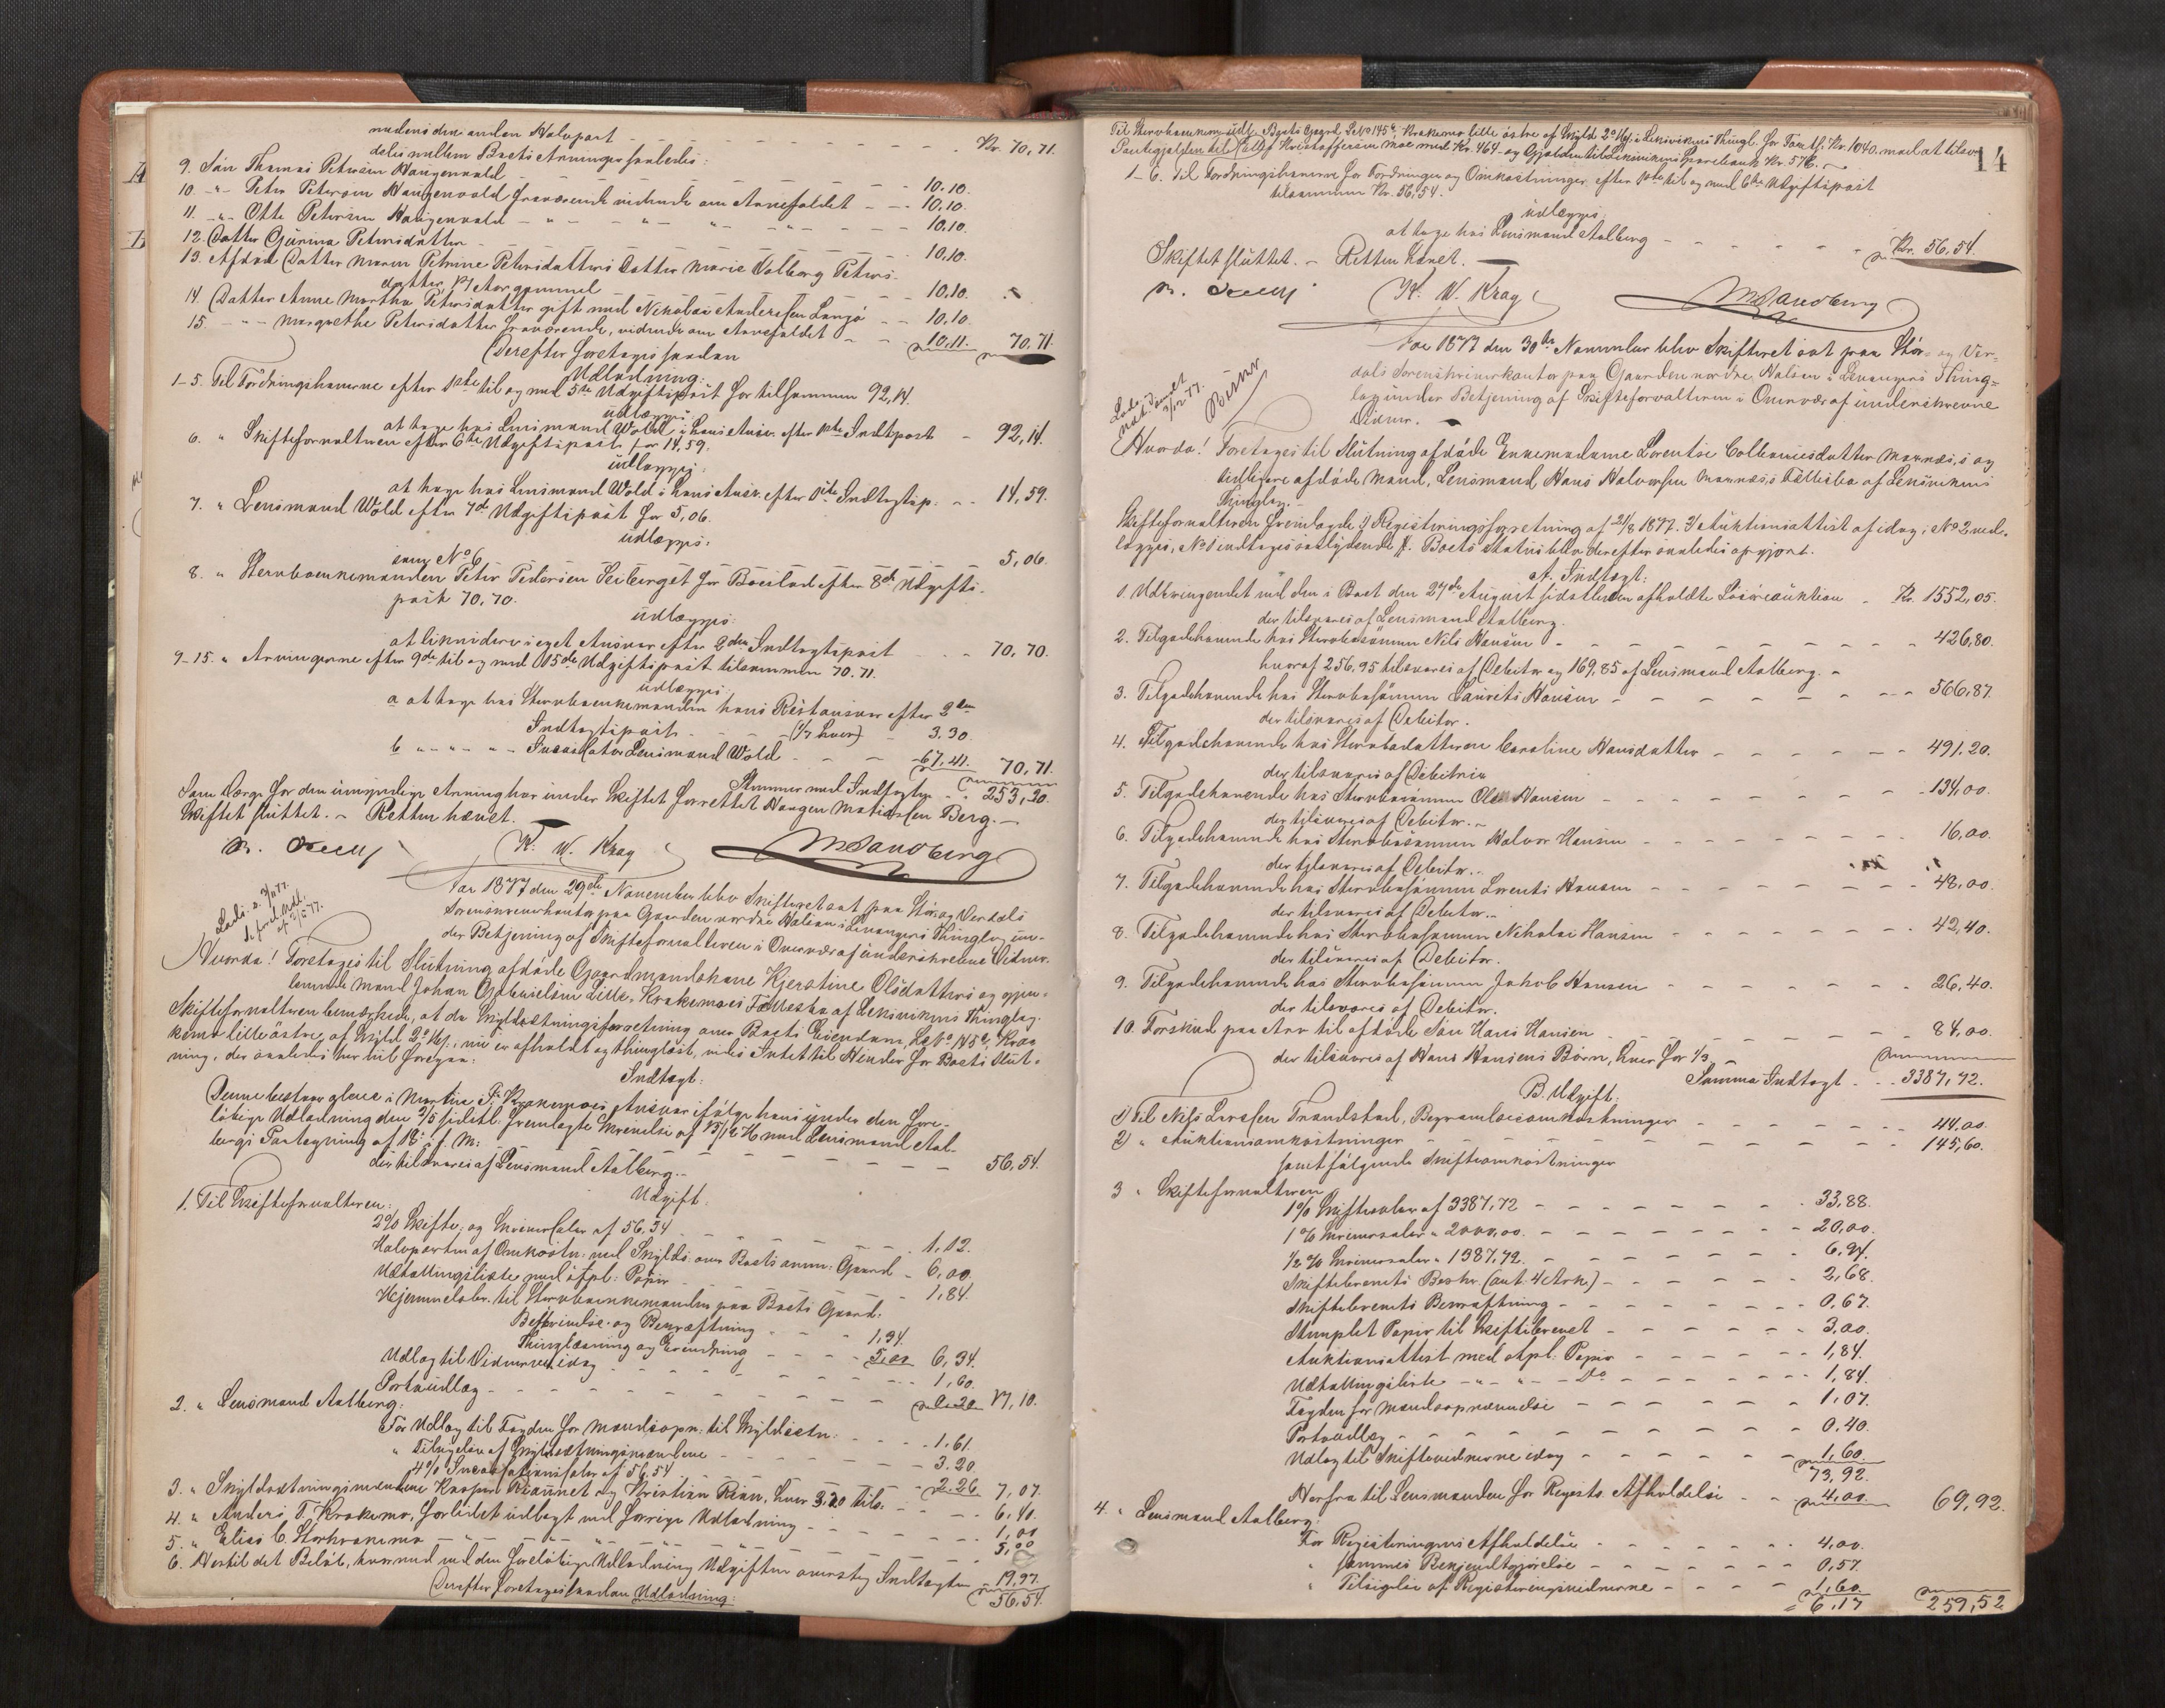 medens den anden Halvpart - - - - - - - - - Kr. 70,71.
deles mellem Boets Arvinger saaledes:
9. Søn Thomas Petersen Haugenvold - - - - - - - 10.10.
10. -"- Peter Petersen Haugenvold fraværende vidende om Arvefaldet - - - 10.10.
11. -"- Otte Petersen Haugenvold - " - " - " - " - - - 10.10.
12. Datter Gjurina Petersdatter - - - - - - 10.10.
13. Afdød Datter Maren Petrine Petersdatters Datter Marie Valborg Peters-
datter, 17 Aar gammel - - - - - - 10.10.
14. Datter Anne Martha Petersdatter gift med Nikolai Anderssen - - 10.10
15. -"- Margrethe Petersdatter fraværende, vidende om Arvefaldet - - 10.11. 70.71.
Derefter foretages saadan
Udlodning:
1-5. Til Fordringshaverne efter 1ste til og med 5te Udgiftspost for tilsammen 92,14.
udlægges:
at tage hos Lensmand Wold i hans Ansv. efter 1ste Indtpost - 92,14.
6. " Skifteforvalteren efter 6te Udgiftspost for 14,59.
udlægges:
at tage hos Lensmand Wold i hans Ansv. efter 1ste Indtægtsp. - - 14,59.
7. " Lensmand Wold efter 7de Udgiftspost for 5,06.
udlægges:
som No 6 - - - - - - 5,06.
8. " Stervboenkemanden Peter Pedersen for Boeslod efter 8de Udgifts-
post 70,70.
udlægges:
at likvidere i eget Ansvar efter 2den Indtægtspost - - 70,70.
9-15. " Arvingerne efter 9de til og med 15de Udgiftspost tilsammen 70.71.
udlægges
a at tage hos Stervboenkemanden hans Restansvar efter 2den
Indtægtspost - - - (1/7 hver) - 3.30.
b " - " - " - Incassator Lensmand Wold - - - 67,41. 70,71.
Stemmer med Indtægten - - 253,20.
Som Værge for den umyndige Arving har under Skiftet forrettet Haagen Mathiassen Berg. -
Skiftet sluttet. - Retten hævet.
K. W. Krag MSandberg
Aar 1877 den 29de November blev Skifteret sat paa Stør og Værdals
Sorenskriverkontor paa Gaarden nordre Halsan i Levangers Thinglag un-
der Betjening af Skifteforvalteren i Overvær af underskrevne Vidner.
Hvorda! Foretages til Slutning afdøde Gaardmandskone Kjerstine Olsdatters og gjen-
levende Mand Johan Gabrielsen Lille-Krakemoes Fællesbo af Leksvikens Thinglag.
Skifteforvalteren bemærkede, at da Skyldsætningsforretning over Boets Eiendom, L.No 145 b, Kra-
kemo lille østre, af Skyld 2 , nu er afholdt og thinglæst, vides Intet til Hinder for Boets Slut-
ning, der saaledes her vil foregaa:
Indtægt:
Denne bestaar alene i Martin Krakemoes Ansvar ifølge hans under den fore-
løbige Udlodning den 2/5 sidstl. fremlagte Skrivelse af 13/12 76 med Lensmand Aal-
bergs Paategning af 18. s. M: - - - - - 56,54.
der tilsvares af Lensmand Aalberg. -
Udgift:
1. Til Skifteforvalteren:
2% Skifte- og Skriversalær af 56,54 - - - - 1,12.
Halvparten af Omkostn. ved Skylds. over Boets Gaard - 6,00.
Udtællingsliste med stpl. Papir - - - - 1,84.
Hjemmelsbr. til Stervboenkemanden paa Boets Gaard:
Beskrivelse og Bekræftning - - 1,34.
Thinglæsning og - - 5,00 6,34.
Udlæg til Vidnerne idag - - - - 1,60.
Portoudlæg - - - - 0.20 17,10.
2. " Lensmand Aalberg:
For Udlæg til Fogden for Mandsopn: til Skyldsætn: - - 1.61.
" Tilsigelse af Skyldsætningsmændene - - - 3.20.
4% Incassationssalær af 56,54 - - - 2.26 7,07.
3. " Skyldsætningsmændene Kasper Rønnet og Kristian Rian, hver 3.20 tils: - - 6,40.
4. " Anders T. Krakemo, forlidet udlagt ved forrige Udlodning - - - 1,00
5. " Elias C. Storkrakemo - " - " - " - " - 5,00
6. Hertil det Beløb, hvormed ved den foreløbige Udlodning Udgiften oversteg Indtægten - 19,97.
56,54.
Derefter foretages saadan Udlodning:
14
Til Stervboenkemanden udl. Boets Gaard L.No 145 b, Krakemo lille østre af Skyld 2 i Leksvikens Thingl. for Kr. 1040. mod at tilsvare
Pantegjælden til Kristoffersen Moe med Kr. 464. og Gjælden til Leksvikens Sparebank Kr. 576. -
1-6. Til Fordringshaverne for Fordringer og Omkostninger efter 1ste til og med 6te Udgiftspost
tilsammen Kr. 56,54.
udlægges:
at tage hos Lensmand Aalberg - - - - - - Kr. 56,54.
Skiftet sluttet. - Retten hævet.
K. W. Krag MSandberg
Aar 1877 den 30te November blev Skifteret sat paa Stør- og Vær-
dals Sorenskriverkontor paa Gaarden nordre Halsan i Levangers Thing-
lag under Betjening af Skifteforvalteren i Overvær af underskrevne
Vidner.
Hvorda! Foretages til Slutning afdøde Enkemadame Lorentse Colbansdatter Mannæs's og
tidligere afdøde Mand, Lensmand Hans Halvorsen Mannæs's Fællesbo af Leksvikens
Thinglag. -
Skifteforvalteren fremlagde 1) Registreringsforretning af 21/8 1877. 2) Auktionsattist af idag; No 2 ved-
lægges, No 1 indtages saalydende . Boets Status blev derefter saaledes opgjort.
A. Indtægt:
1. Udbringendet ved den i Boet den 27de August sidstleden afholdte Løsøreauktion - Kr. 1552,05.
der tilsvares af Lensmand Aalberg.
2. Tilgodehavende hos Stervbosønnen Nils Hansen - - - - - 426,80.
hvoraf 256,95 tilsvares af Debitor og 169,85 af Lensmand Aalberg. -
3. Tilgodehavende hos Stervbosønnen Laurits Hansen - - - - - 566,87.
der tilsvares af Debitor.
4. Tilgodehavende hos Stervbodatteren Caroline Hansdatter - - - - 491,20.
der tilsvares af Debitrix
5. Tilgodehavende hos Stervbosønnen Ole Hansen - - - - - 134,00.
der tilsvares af Debitor. -
6. Tilgodehavende hos Stervbosønnen Halvor Hansen - - - - - 16,00.
der tilsvares af Debitor. -
7. Tilgodehavende hos Stervbosønnen Lorents Hansen - - - - - 48,00.
der tilsvares af Debitor. -
8. Tilgodehavende hos Stervbosønnen Nikolai Hansen - - - - - 42,40.
der tilsvares af Debitor.
9. Tilgodehavende hos Stervbosønnen Jakob Hansen - - - - - 26,40.
der tilsvares af Debitor.
10. Forskud paa Arv til afdøde Søn Hans Hansen - - - - - 84,00.
der tilsvares af Hans Hansens Børn, hver for 1/3 -
Summa Indtægt - - 3387,72.
B. Udgift:
1) Til Nils Larssen Trandstad, Begravelsesomkostninger - - - - 44,00.
2) " Auktionsomkostninger - - - - - 145,60.
samt følgende Skifteomkostninger
3 " Skifteforvalteren
1% Skiftesalær af 3387,72 - - - - 33,88.
1% Skriversalær " 2000,00. - - - - 20,00.
1/2% Skriversalær " 1387,72. - - - - 6,94.
Skiftebrevets Beskr. (ant. 4 Ark) - - - - 2,68.
Skiftebrevets Bekræftning - - - - 0.67.
Stemplet Papir til Skiftebrevet - - - - 3,00.
Auktionsattist med stpl. Papir - - - - 1,84.
Udtællingsliste - " - " - Do - - - 1,84.
Fogden for Mandsopnævnelse - - - - 1.07.
Portoudlæg - - - - - 0.40.
Udlæg til Skiftevidnerne idag - - - - 1,60.
73,92.
Herfra til Lensmanden for Registr. Afholdelse - - 4,00. 69,92.
4. " Lensmand Aalberg:
For Registreringens Afholdelse - - - - 4,00.
" sammes Bekjendtgjørelse - - - - 0,57.
" Tilsigelse af Registreringsvidnerne - - - 1,60.
= 6,17 259,52